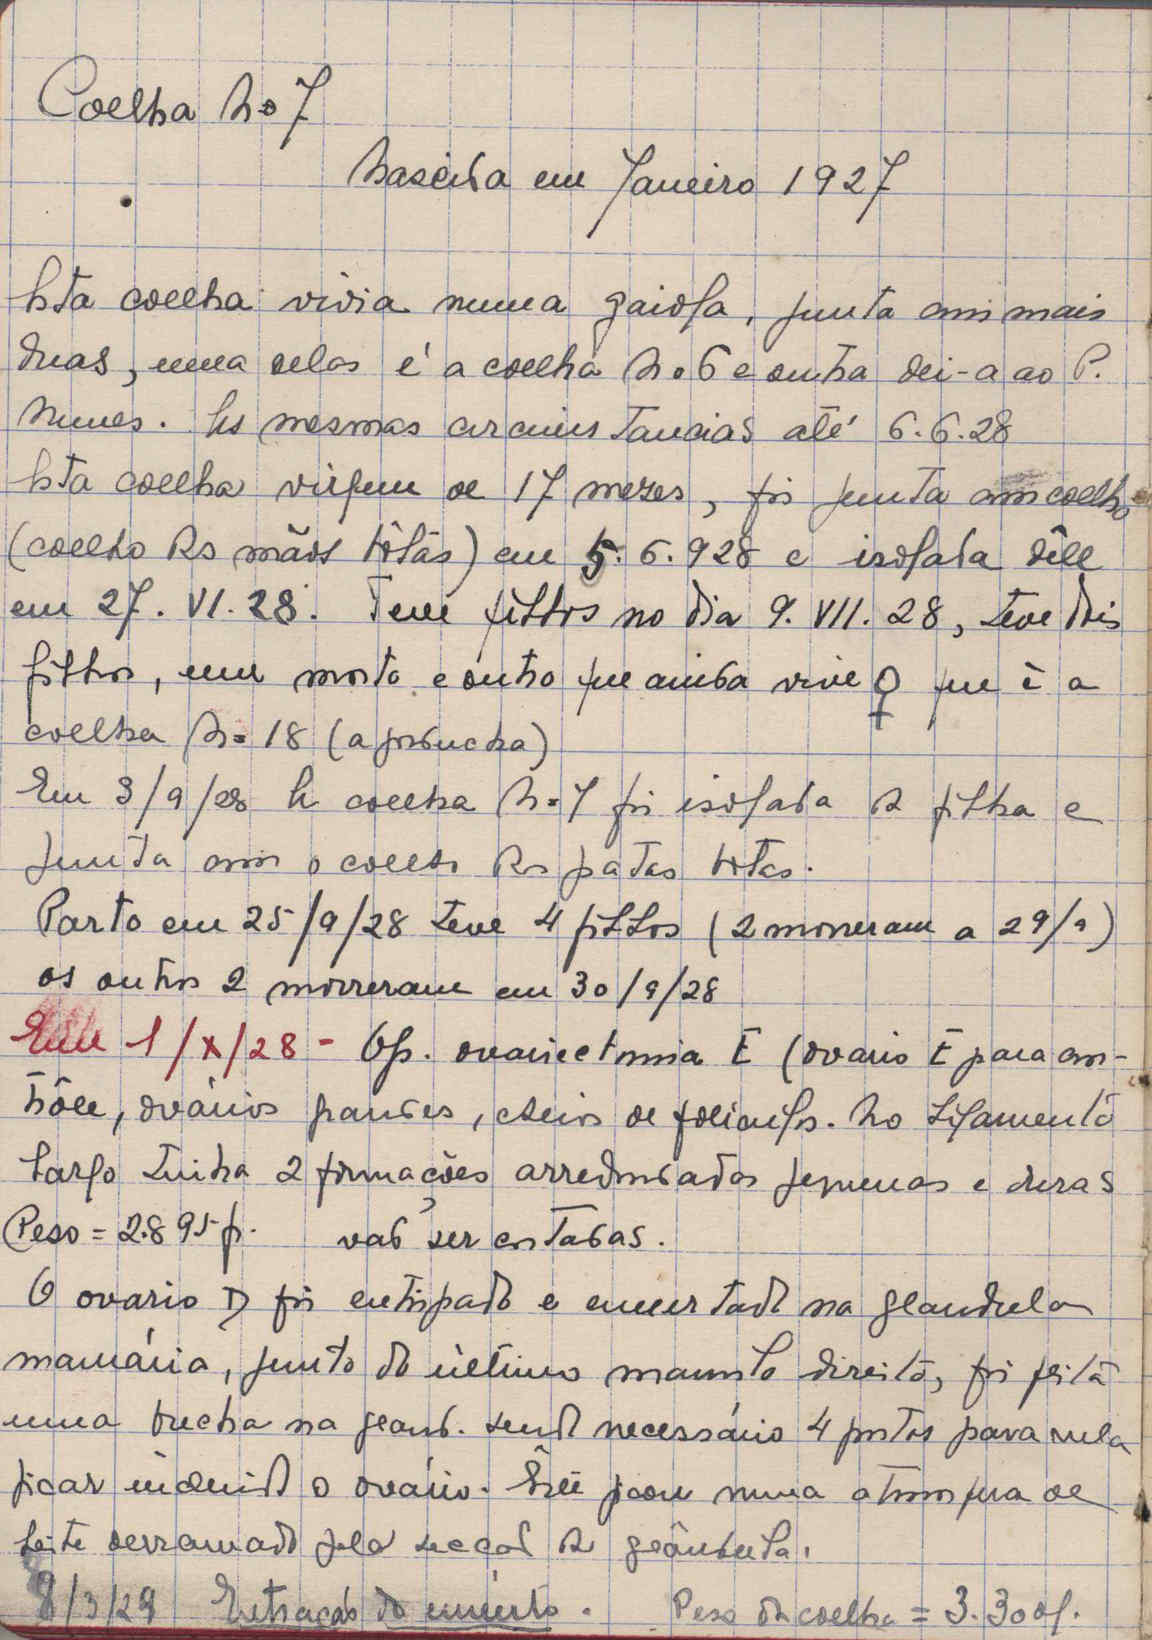 Coelha No 7
Nascida em Janeiro 1927
Esta coelha vivia numa gaiola, junta com mais
duas, uma delas é a coelha No 6 e outra dei-a ao P.
Nunes. As mesmas circunstancias até 6.6.28
Esta coelha virgem de 17 mezes, foi junta com coelho
(coelho das mãos tôtas) em 5.6.928 e isolada dêle
em 27. VI. 28. Teve filhos no dia 9. VII. 28, teve dois
filhos, um morto e outro que ainda vive ♀ que é a
coelha No 18 (a gorducha)
Em 3/9/28 A coelha No 7 foi isolada da filha e
junta com o coelho das patas totas.
Parto em 25/9/28 teve 4 filhos (2 morreram a 29/9)
os outros 2 morreram em 30/9/28
Em 1/X/28 - Op. ovariectomia E (ovario E para con-
trôle, ovários grandes, cheios de foliculos. No ligamento
largo tinha 2 formações arredondadas pequenas e duras
Peso = 2.895 g. vão ser cortadas.
O ovario D foi extirpado e enxertado na glandula
mamária, junto do último mamilo direito, foi feita
uma brecha na gland. sendo necessário 4 pontos para nela
ficar incluido o ovário. Êste ficou numa atmosfera de
leite derramado pela secção da glândula.
8/3/29 Extracção do enxerto. Peso da coelha = 3.300 g.